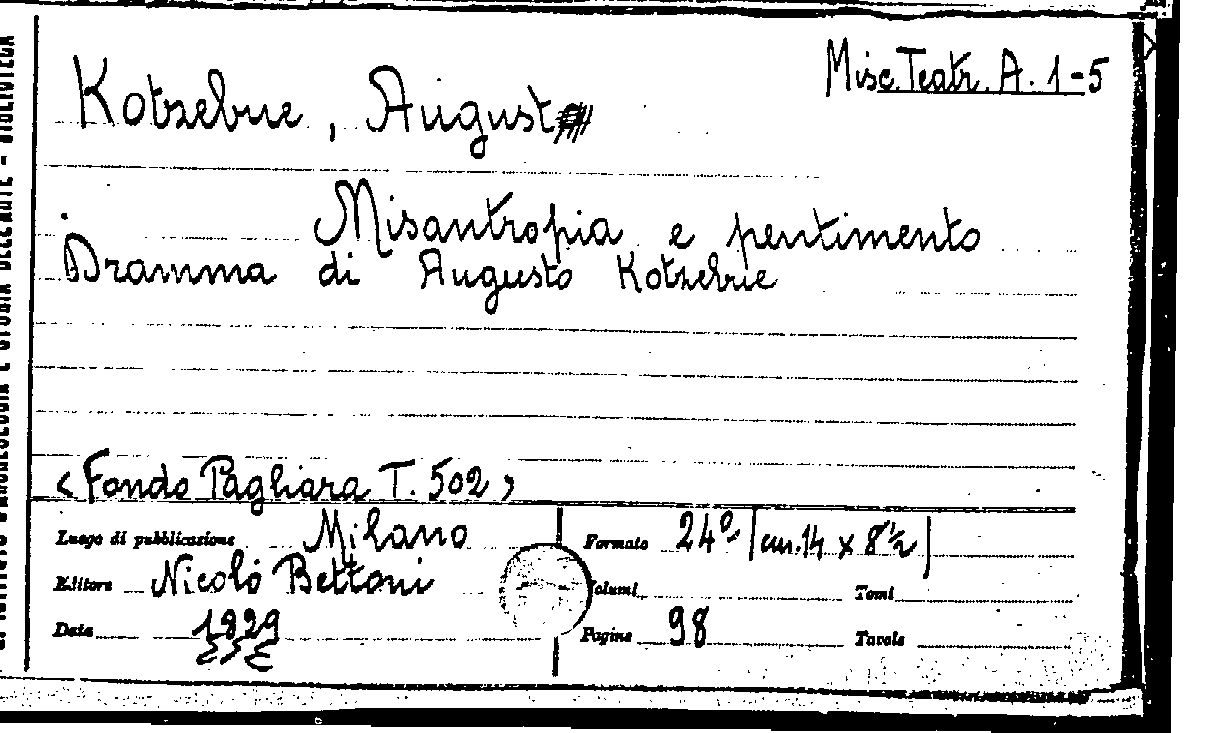 Misc. Teatr. A. 1-5
Kotzebue, August
Misantropia e pentimento
Dramma di Augusto Kotzebue
< Fondo Pagliara T. 502 >
Luogo di pubblicazione Milano
Editore Nicolò Bettoni
Data 1829
Formato 24º [cm. 14 x 8½]
Volumi Tomi
Pagine 98 Tavole